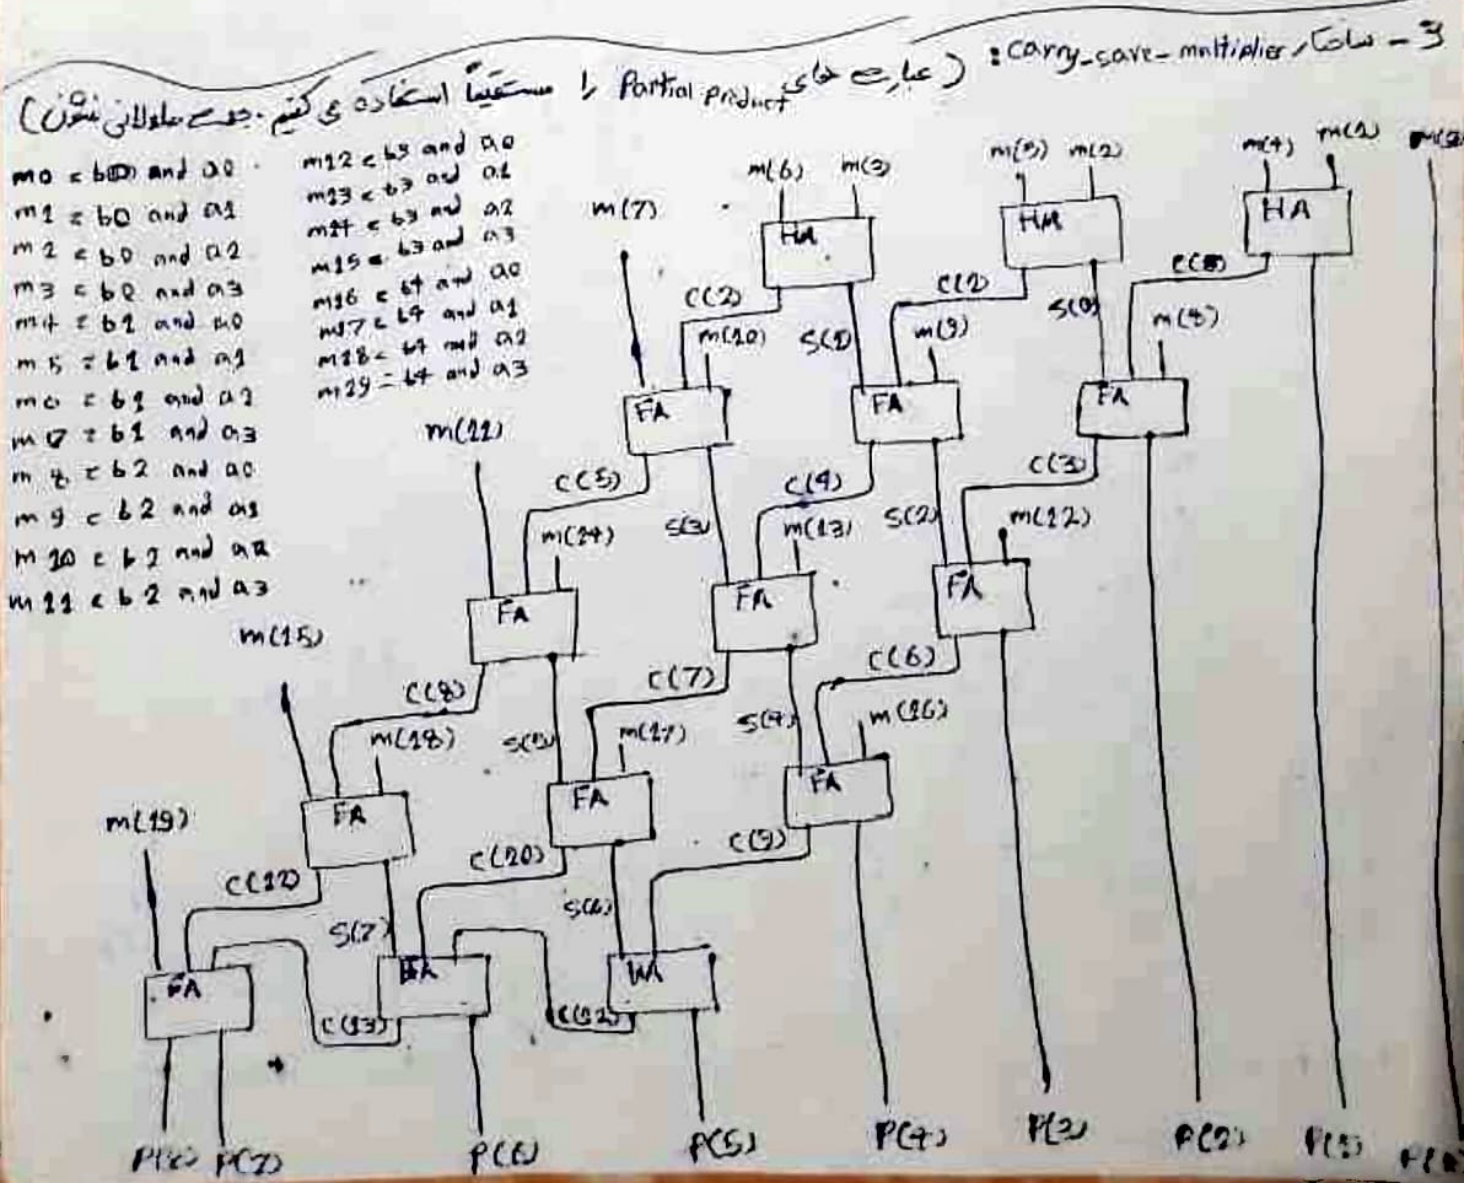 3 - ساختار carry_save_multiplier :
(عبارت های Partial product را مستقیماً استفاده می کنیم. جهت طولانی نشدن)
m0 = b0 and a0
m1 = b0 and a1
m2 = b0 and a2
m3 = b0 and a3
m4 = b1 and a0
m5 = b1 and a1
m6 = b1 and a2
m7 = b1 and a3
m8 = b2 and a0
m9 = b2 and a1
m10 = b2 and a2
m11 = b2 and a3
m12 = b3 and a0
m13 = b3 and a1
m14 = b3 and a2
m15 = b3 and a3
m16 = b4 and a0
m17 = b4 and a1
m18 = b4 and a2
m19 = b4 and a3
m(7) m(6) m(3) m(5) m(2) m(4) m(1) m(0)
HA HA HA
C(2) S(1) C(1) S(0) C(0)
m(10) m(9) m(8)
FA FA FA
m(11) C(5) S(3) C(4) S(2) C(3)
m(14) m(13) m(12)
FA FA FA
m(15) C(8) S(5) C(7) S(4) C(6)
m(18) m(17) m(16)
FA FA FA
m(19) C(11) S(7) C(10) S(6) C(9)
FA FA HA
C(13) C(12)
P(8) P(7) P(6) P(5) P(4) P(3) P(2) P(1) P(0)